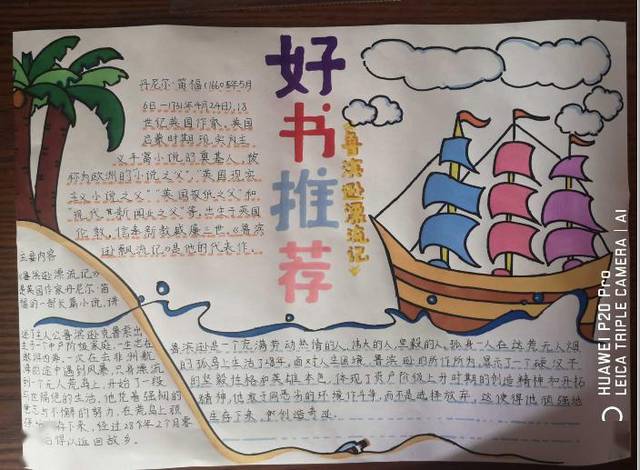 好书推荐
鲁滨逊漂流记
丹尼尔·笛福(1660年5月
6日—1731年4月24日),18
世纪英国作家,英国
启蒙时期现实主
义丰富小说的奠基人,被
称为欧洲的“小说之父”、“英国现实
主义小说之父”、“英国报纸之父”和
“现代新闻业之父”等,出生于英国
伦敦,信奉新教威廉三世。《鲁滨
逊飘流记》是他的代表作。
主要内容
《鲁滨逊漂流记》
是英国作家丹尼尔·笛
福的一部长篇小说,讲
述了主人公鲁滨逊克鲁索出
生于一个中产阶级家庭,一生志在
一次在去非洲航
海的途中遇到风暴,只身漂流
到个无人荒岛上,开始了一段
与世隔绝的生活,他凭着强韧的
意志与不懈的努力,在荒岛上顽
存下来,经过28个年2个月零
得以返回故乡。
鲁滨逊是一个充满劳动热情的人,伟大的人,坚毅的人。孤身一人在这荒无人烟
的孤岛上生活了28年,面对人生困境,鲁滨逊的所作所为,显示了一个硬汉子
的坚毅性格和英雄本色,体现了资产阶级上升时期的创造精神和开拓
精神,他敢于同恶劣的环境作斗争,而不是选择放弃,这使得他顽强地
生存下来,
HUAWEI P20 Pro
LEICA TRIPLE CAMERA | AI